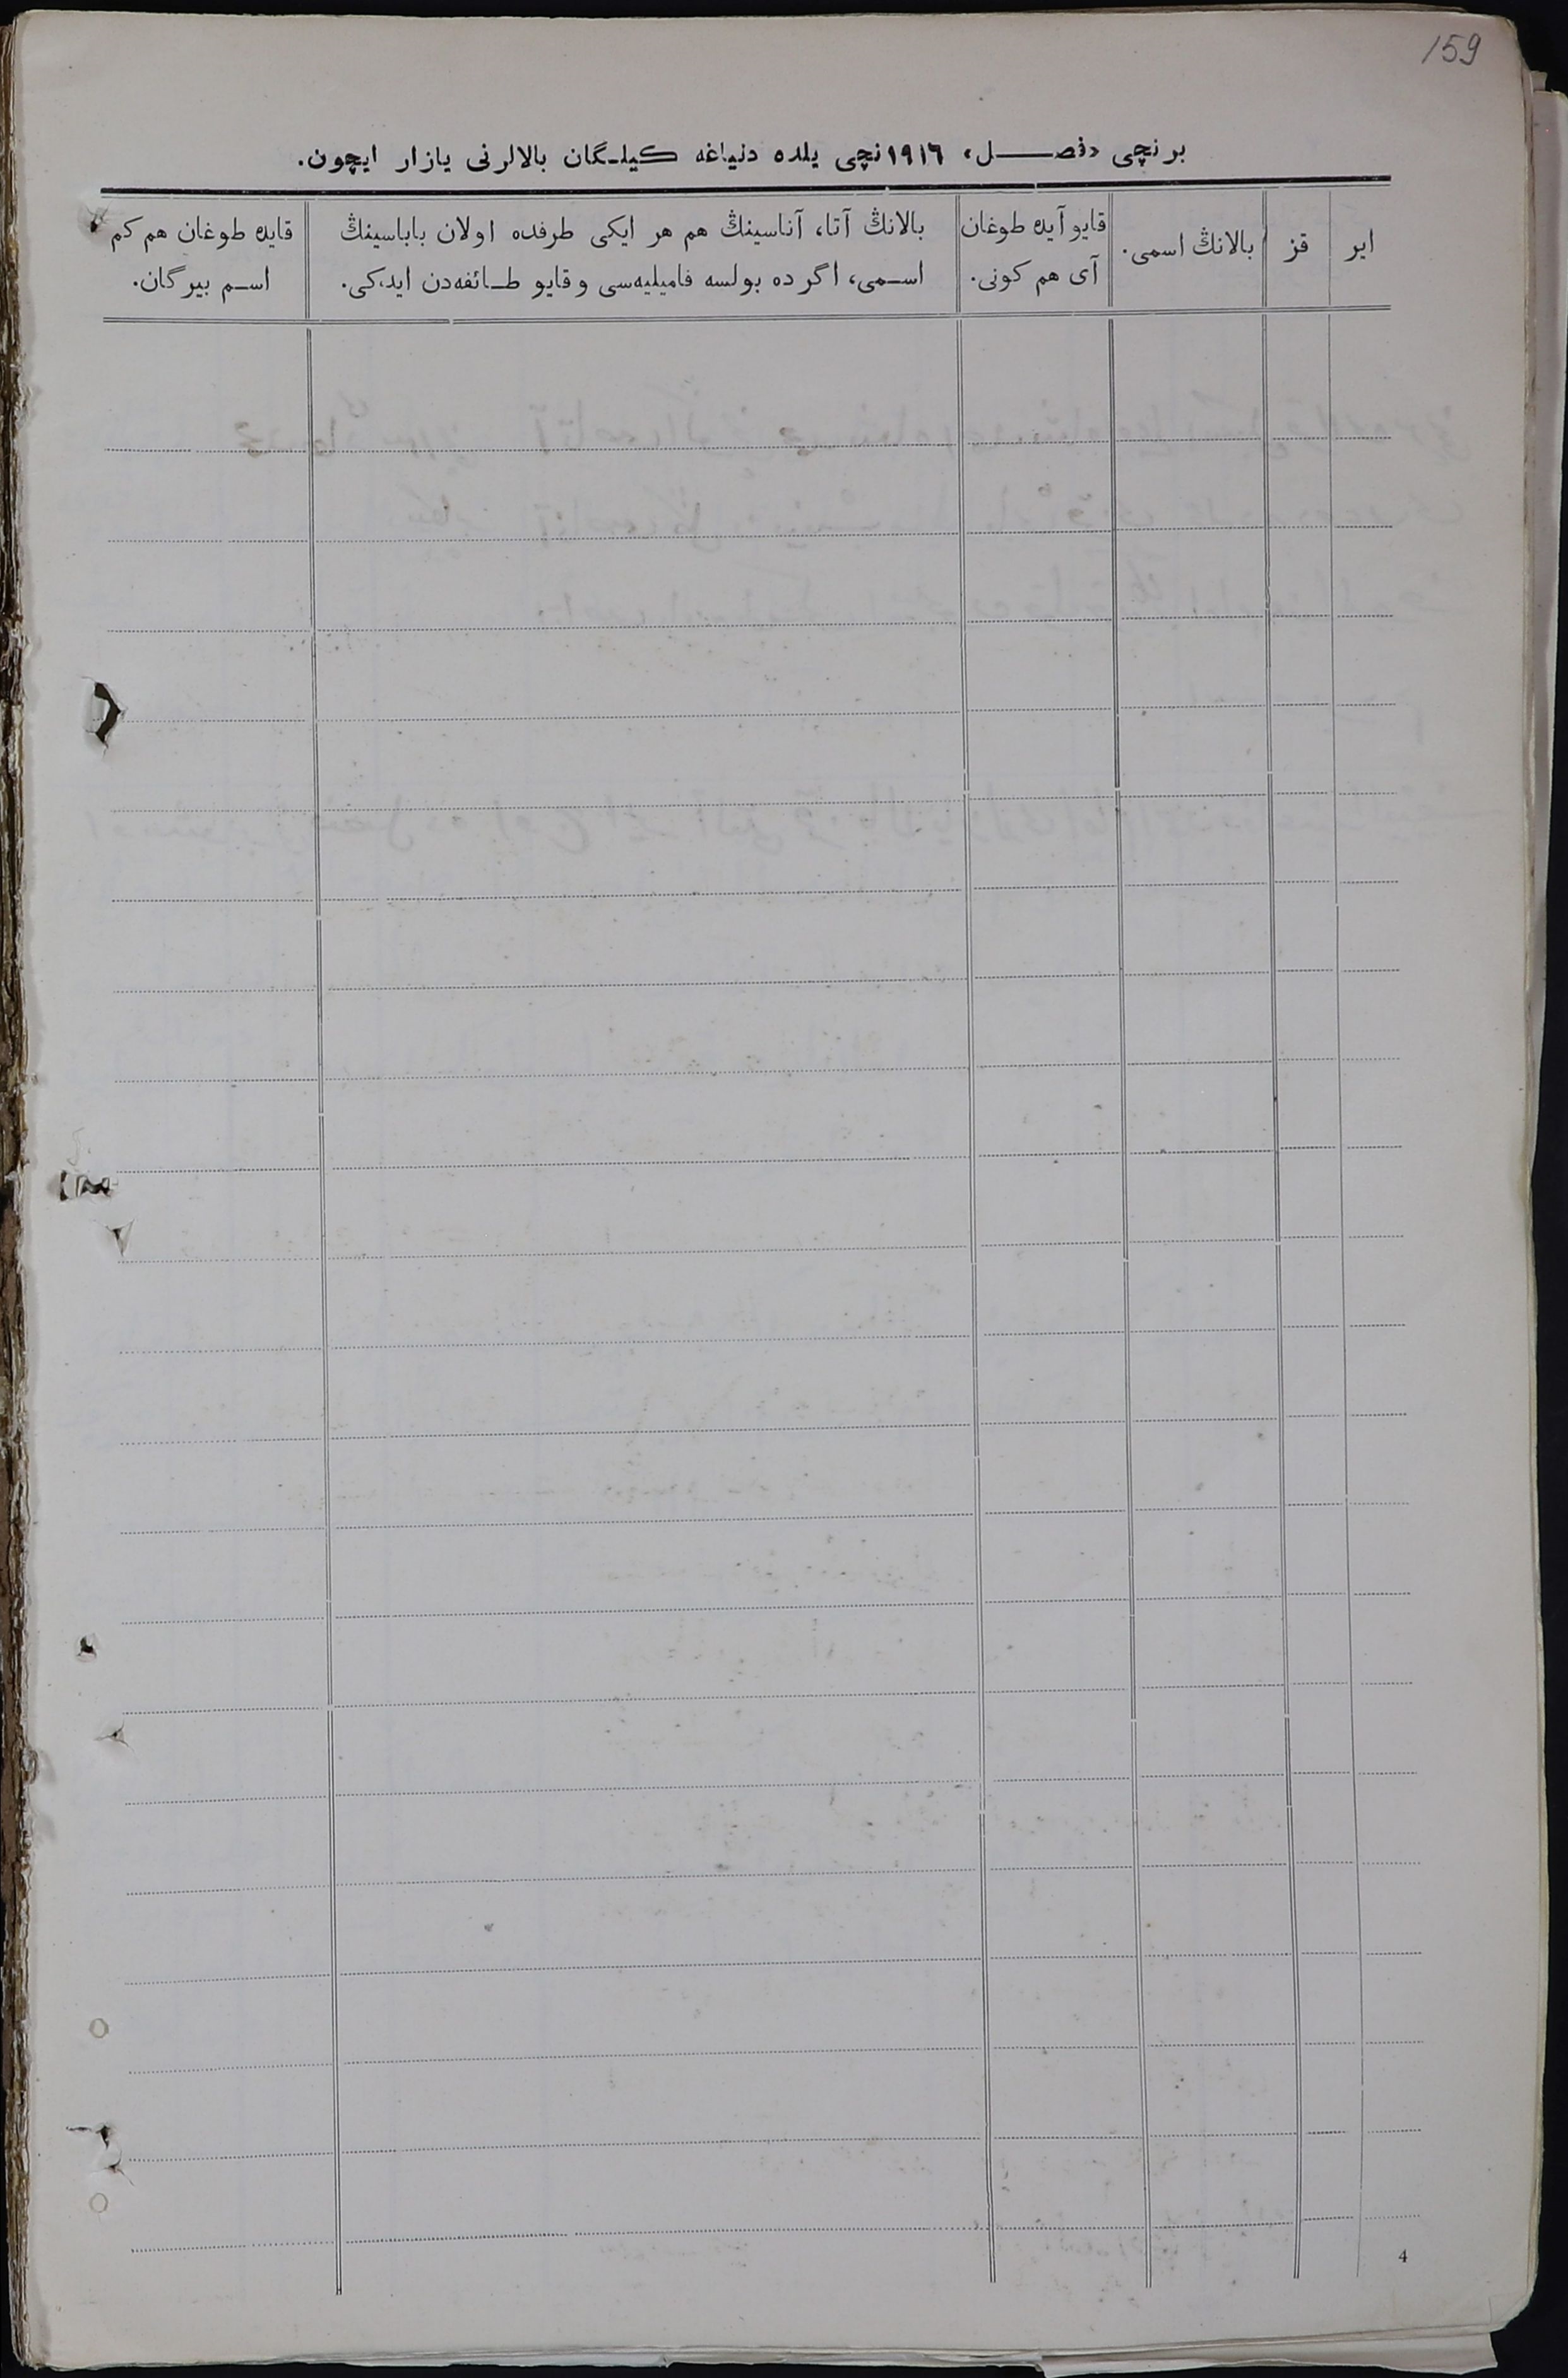 159
برنچی «فصل» ١٩١٦نچی یلده دنیاغه کیلگان بالالرنی یازار ایچون.
ایر
قز
بالانڭ اسمی.
قایو آیده طوغان
آی هم کونی.
بالانڭ آتا، آناسینڭ هم هر ایکی طرفده اولان باباسینڭ
اسمی، اگر ده بولسه فامیلیه‌سی و قایو طائفه‌دن ایدکی.
قایده طوغان هم کم
اسم بیرگان.
4